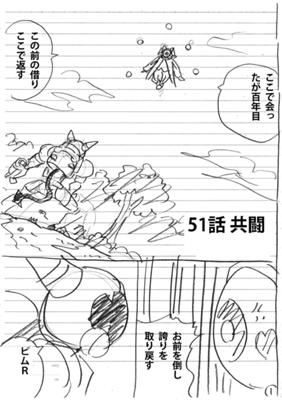 ここで会っ
たが百年目
この前の借り
ここで返す
51話 共闘
お前を倒し
誇りを
取り戻す
ビムR
1